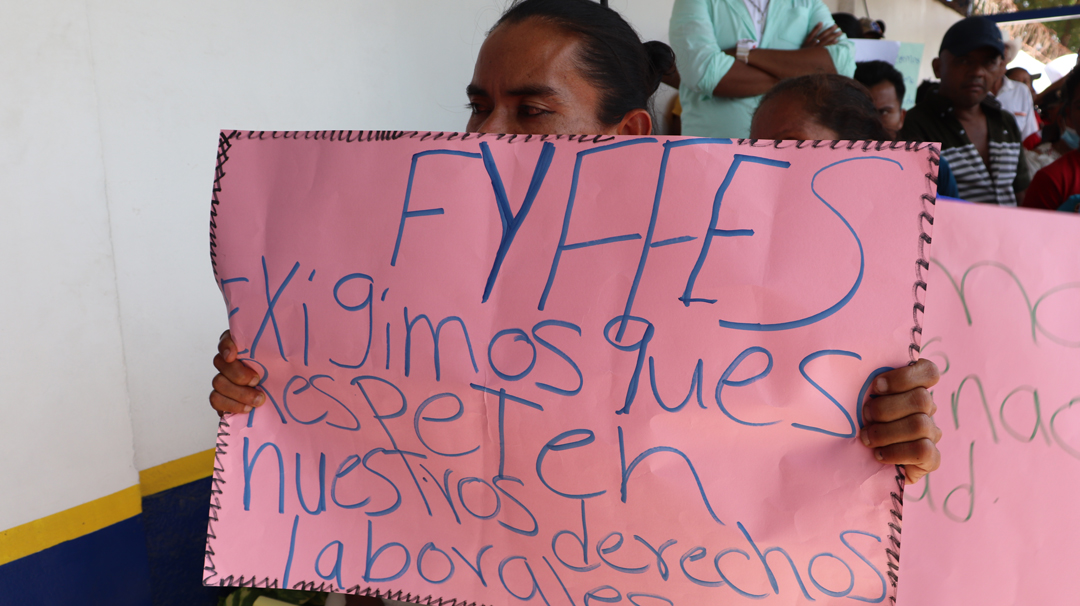 FYFFES
Exigimos que se
Respeten
nuestros derechos
laborales